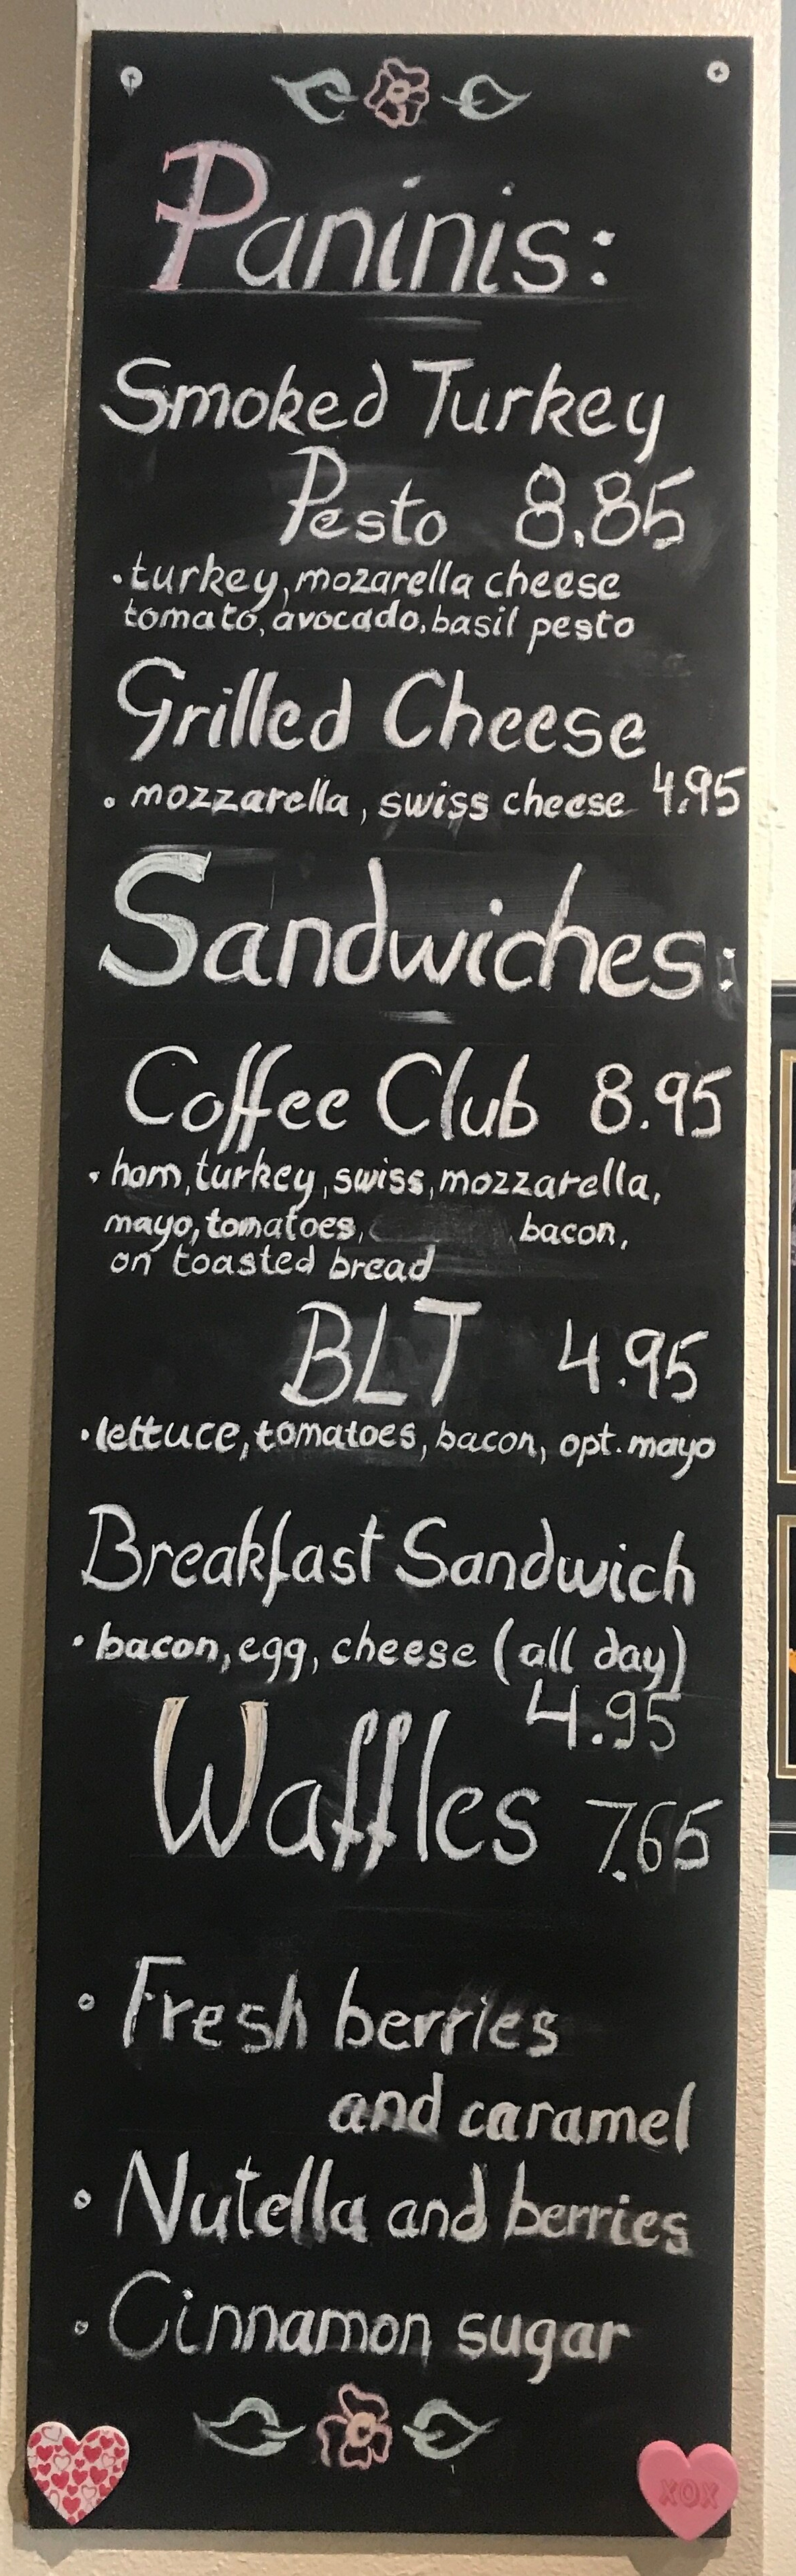 Paninis:
Smoked Turkey
Pesto 8.85
•turkey, mozarella cheese
tomato, avocado, basil pesto
Grilled Cheese
• mozzarella, swiss cheese 4.95
Sandwiches:
Coffee Club 8.95
• ham, turkey, swiss, mozzarella,
mayo, tomatoes, bacon,
on toasted bread
BLT 4.95
•lettuce, tomatoes, bacon, opt. mayo
Breakfast Sandwich
• bacon, egg, cheese (all day)
4.95
Waffles 7.65
• Fresh berries
and caramel
• Nutella and berries
• Cinnamon sugar
XOX